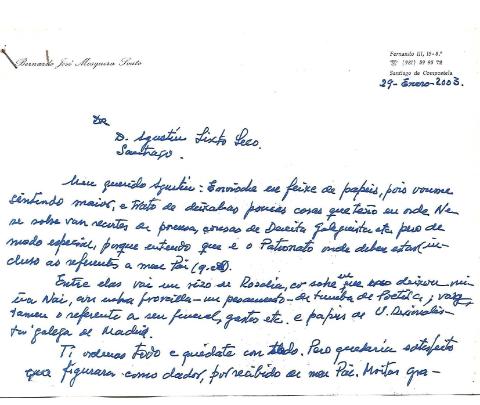 Bernardo José Mosquera Souto
Fernando III, 15-8.º
☎ (981) 59 95 72
Santiago de Compostela
29-Enero-2003
D. Agustín Sixto Seco.
Santiago.
Meu querido Agustín: Envíoche un feixe de papéis, pois voume
sentindo maior, e trato de deixar as poucas cosas que teño en orde. Ne
se sobre van recortes de prensa, cousas de Dereita Galeguista etc. pero de
modo especial, porque entendo que é o Patronato onde deben estar, in-
cluso as referentes a meu Pai (q.e.d.)
Entre elas vai un rizo de Rosalía, co sobre no que deixou mi-
ña Nai, un pensamento de tumba da Poetisa; vai
tamén o referente a seu funeral, gastos etc. e papeis de U.
galega de Madrid.
Ti ordenas todo e quédate con todo. Pero quedaría satisfeito
que figurara como dador, por recibido de meu Pai. Moitas gra-